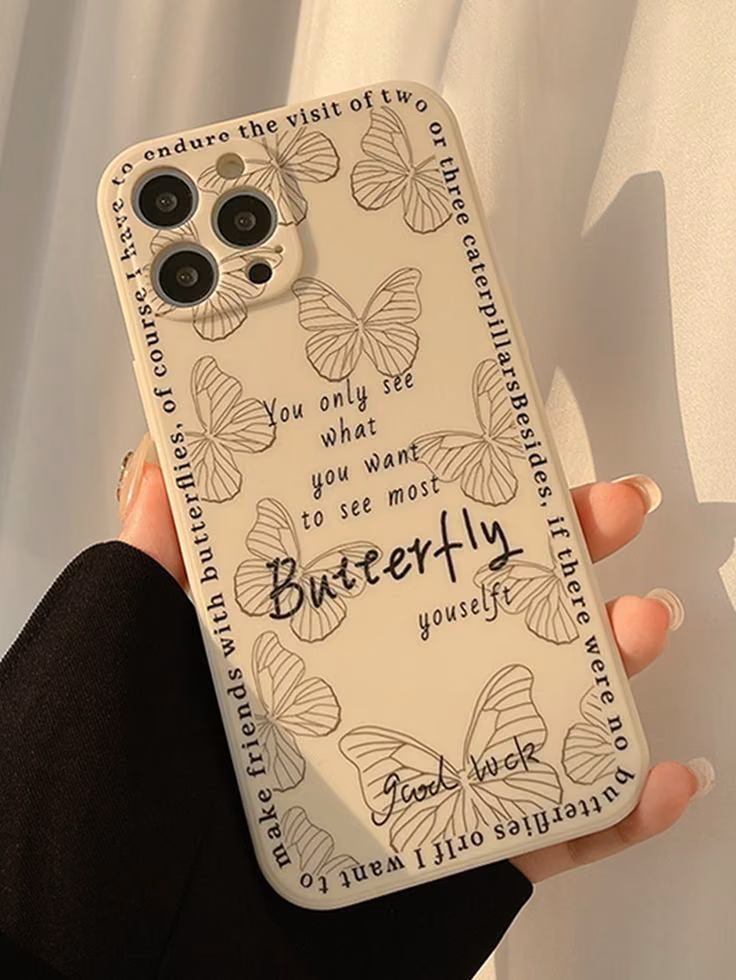 I have to endure the visit of two or three caterpillarsBesides, if there were no butterflies orIf I want to make friends with butterflies, of course
You only see
what
you want
to see most
Butterfly
youselft
good luck